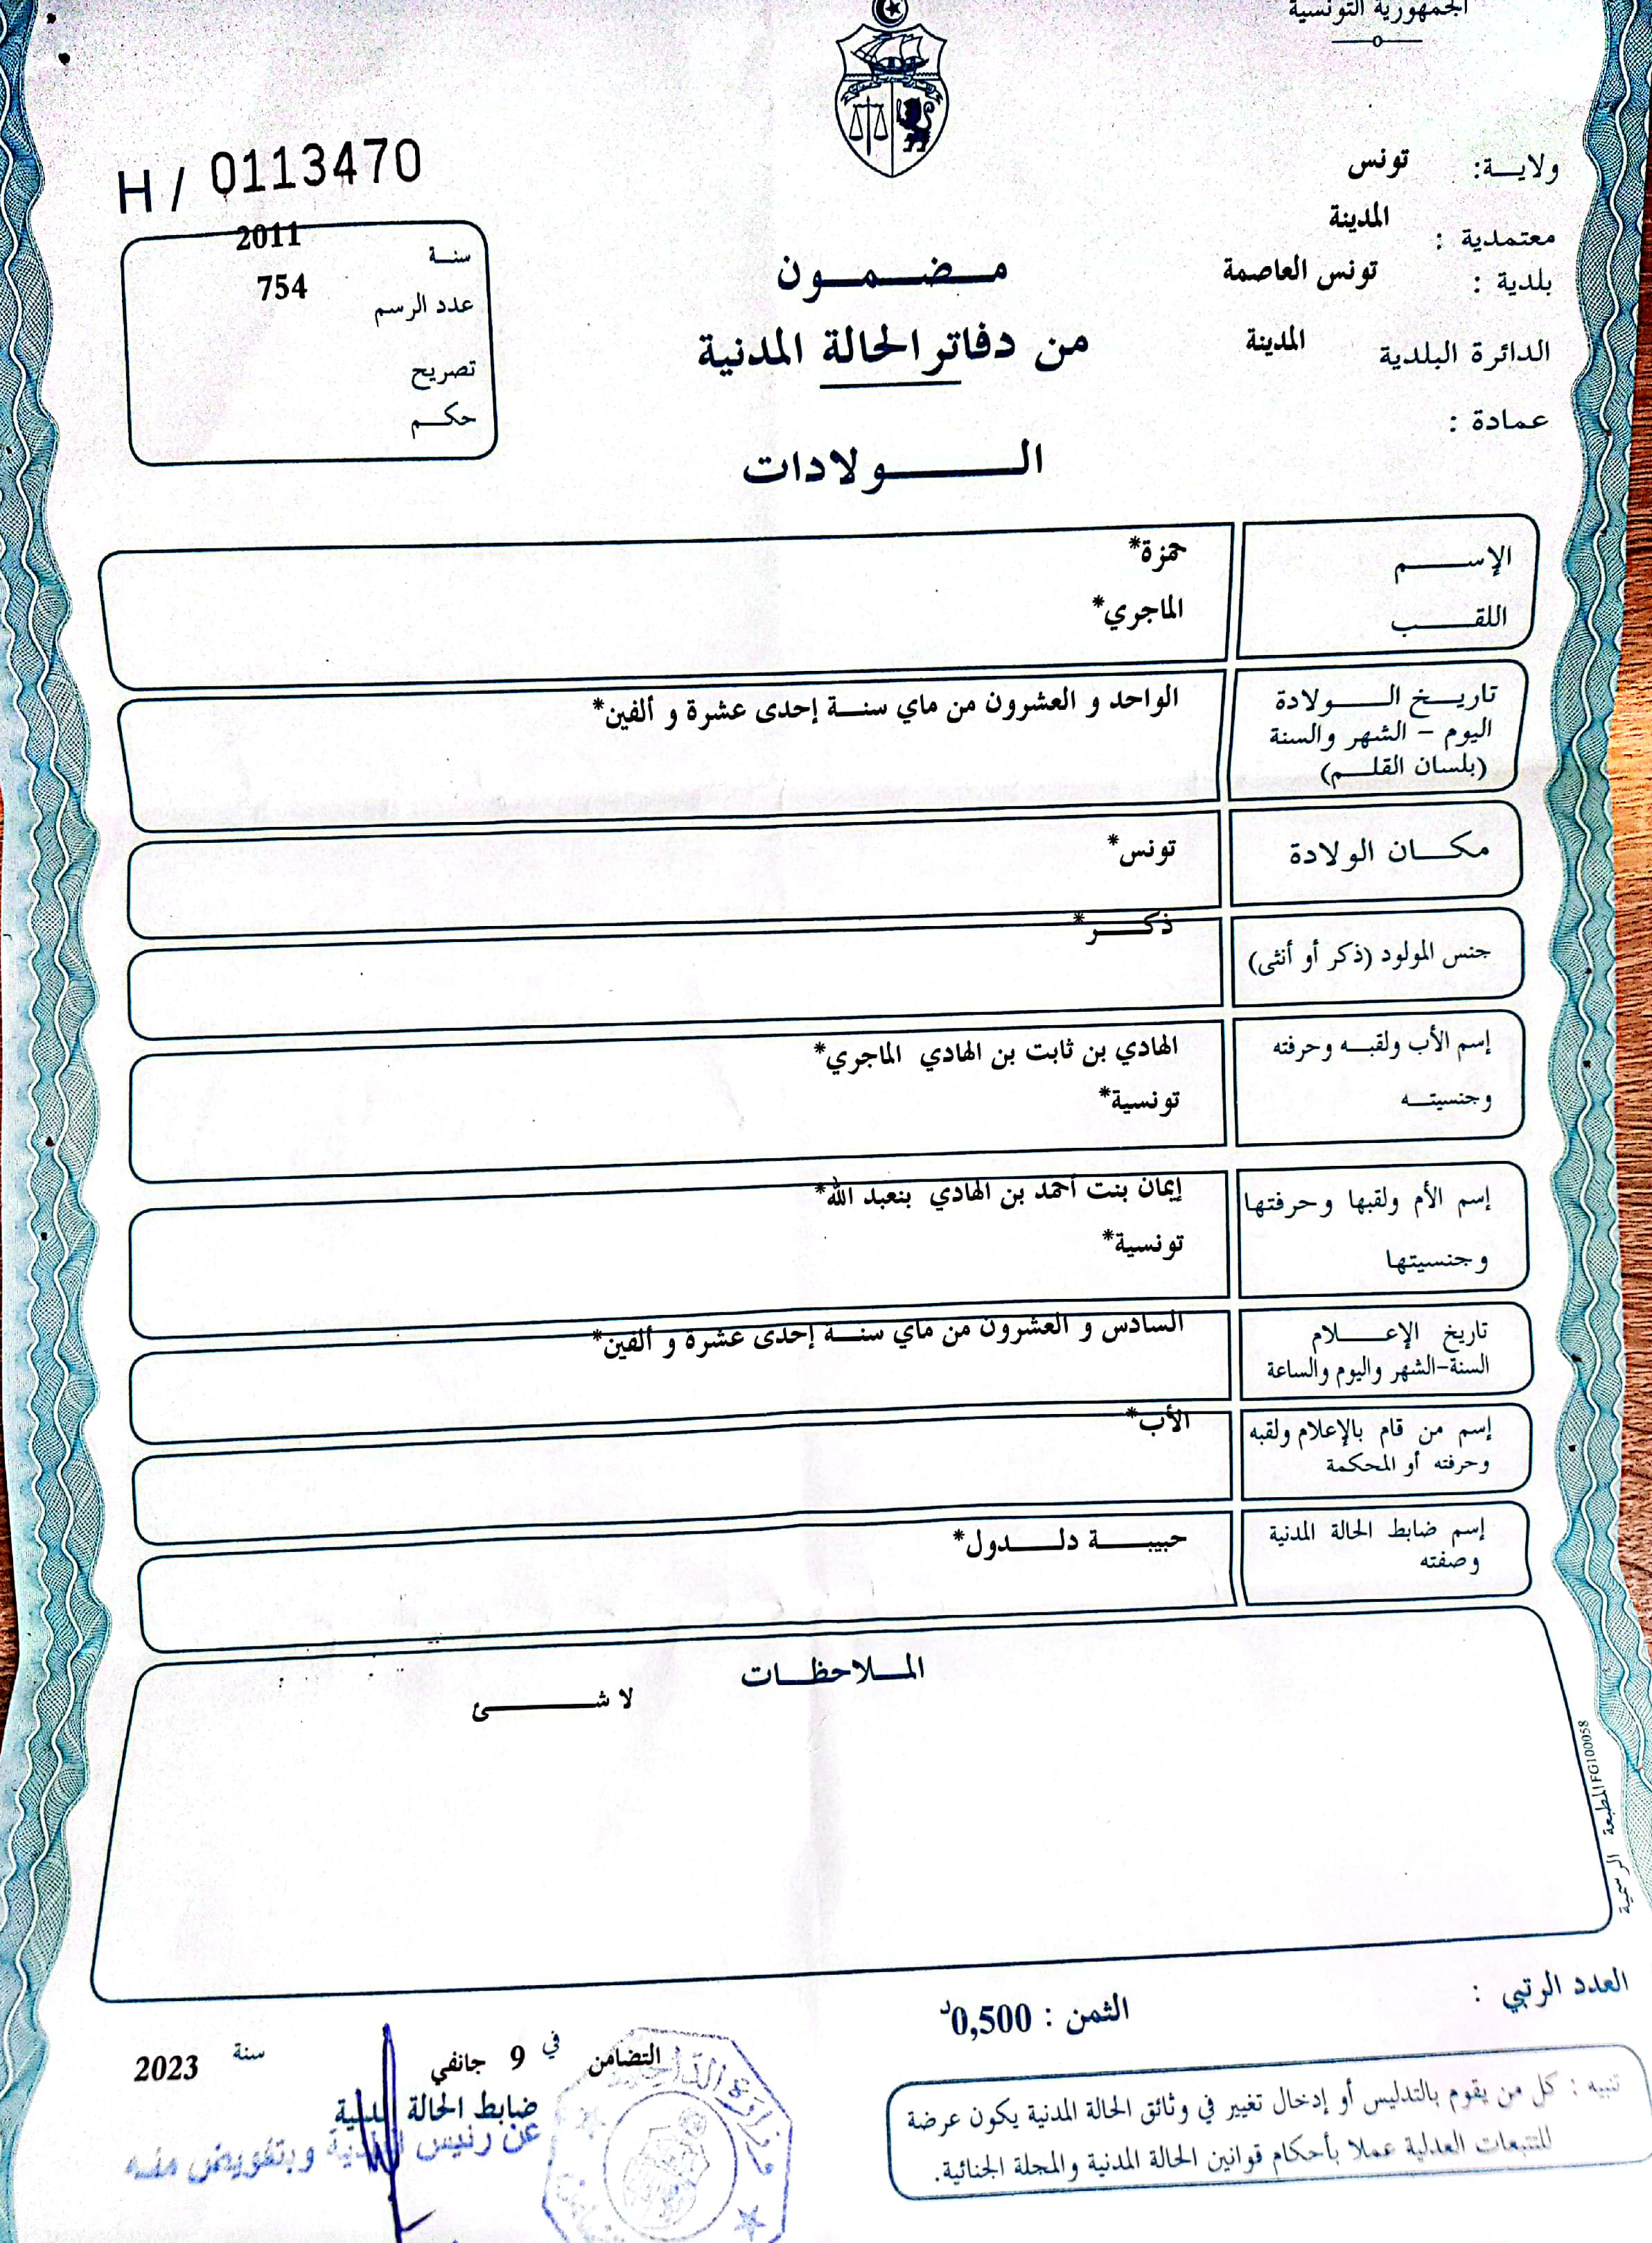 الجمهورية التونسية
H / 0113470
ولايـــة: تونس
معتمدية : المدينة
بلدية : تونس العاصمة
الدائرة البلدية المدينة
عمادة :
سنـة 2011
عدد الرسم 754
تصريح
حكـم
مـضـمـون
من دفاتر الحالة المدنية
الـولادات
الإســـم حمزة*
اللقـــب الماجري*
تاريـخ الـــولادة الواحد و العشرون من ماي سنـة إحدى عشرة و ألفين*
اليوم – الشهر والسنة
(بلسان القلـم)
مكـان الولادة تونس*
جنس المولود (ذكر أو أنثى) ذكـر*
إسم الأب ولقبـه وحرفته الهادي بن ثابت بن الهادي الماجري*
وجنسيتـه تونسية*
إسم الأم ولقبها وحرفتها إيمان بنت أحمد بن الهادي بنعبد الله*
وجنسيتها تونسية*
تاريخ الإعـــلام السادس و العشرون من ماي سنـة إحدى عشرة و ألفين*
السنة-الشهر واليوم والساعة
إسم من قام بالإعلام ولقبه الأب*
وحرفته أو المحكمة
إسم ضابط الحالة المدنية حبيبـة دلـدول*
وصفته
المـلاحظـات
لا شـــئ
المطبعة الرسمية FG100058
العدد الرتبي :
الثمن : 0,500د
التضامن في 9 جانفي سنة 2023
ضابط الحالة المدنية
عن رئيس البلدية وبتفويض منه
وزارة الداخلية
تنبيه : كل من يقوم بالتدليس أو إدخال تغيير في وثائق الحالة المدنية يكون عرضة
للتتبعات العدلية عملا بأحكام قوانين الحالة المدنية والمجلة الجنائية.